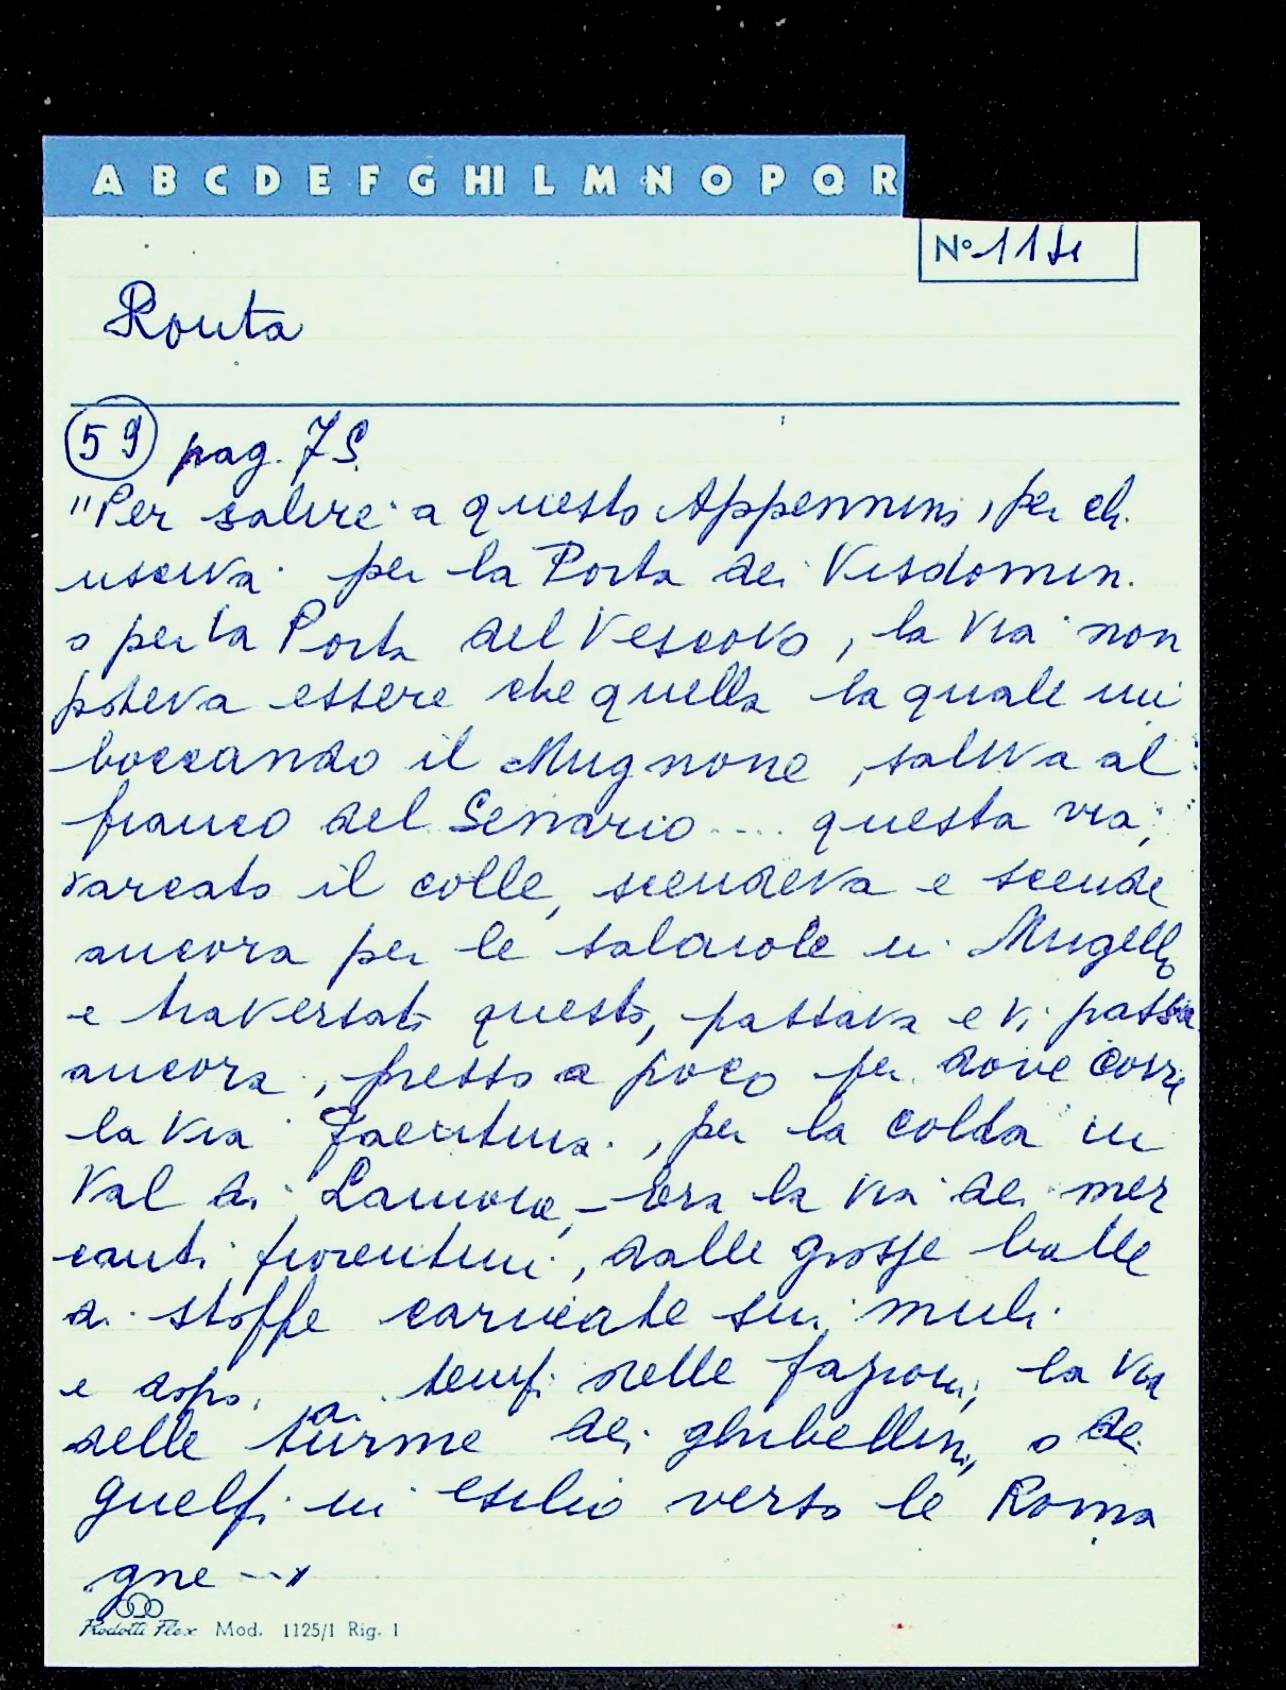 A B C D E F G HI L M N O P Q R
N°
Routa
59 pag. 75
"Per salire a questo Appennino, per chi
usciva per la Porta dei Visdomini
o per la Porta del Vescovo, la via non
poteva essere che quella la quale im
boccando il Mugnone, saliva al
fianco del Senario.... questa via,
varcato il colle, scendeva e scende
ancora per le salaiole in Mugello
e traversato questo, passava e vi passa
ancora, presso a poco per dove corre
la via Faentina, per la colla in
Val di Lamone, - era la via dei mer
canti fiorentini, dalle grosse balle
di stoffe caricate sui muli
e dopo, ai tempi delle fazioni, la via
delle turme dei ghibellini, o dei
guelfi in esilio verso le Roma
gne ..."
Rodotti Flex Mod. 1125/1 Rig. 1